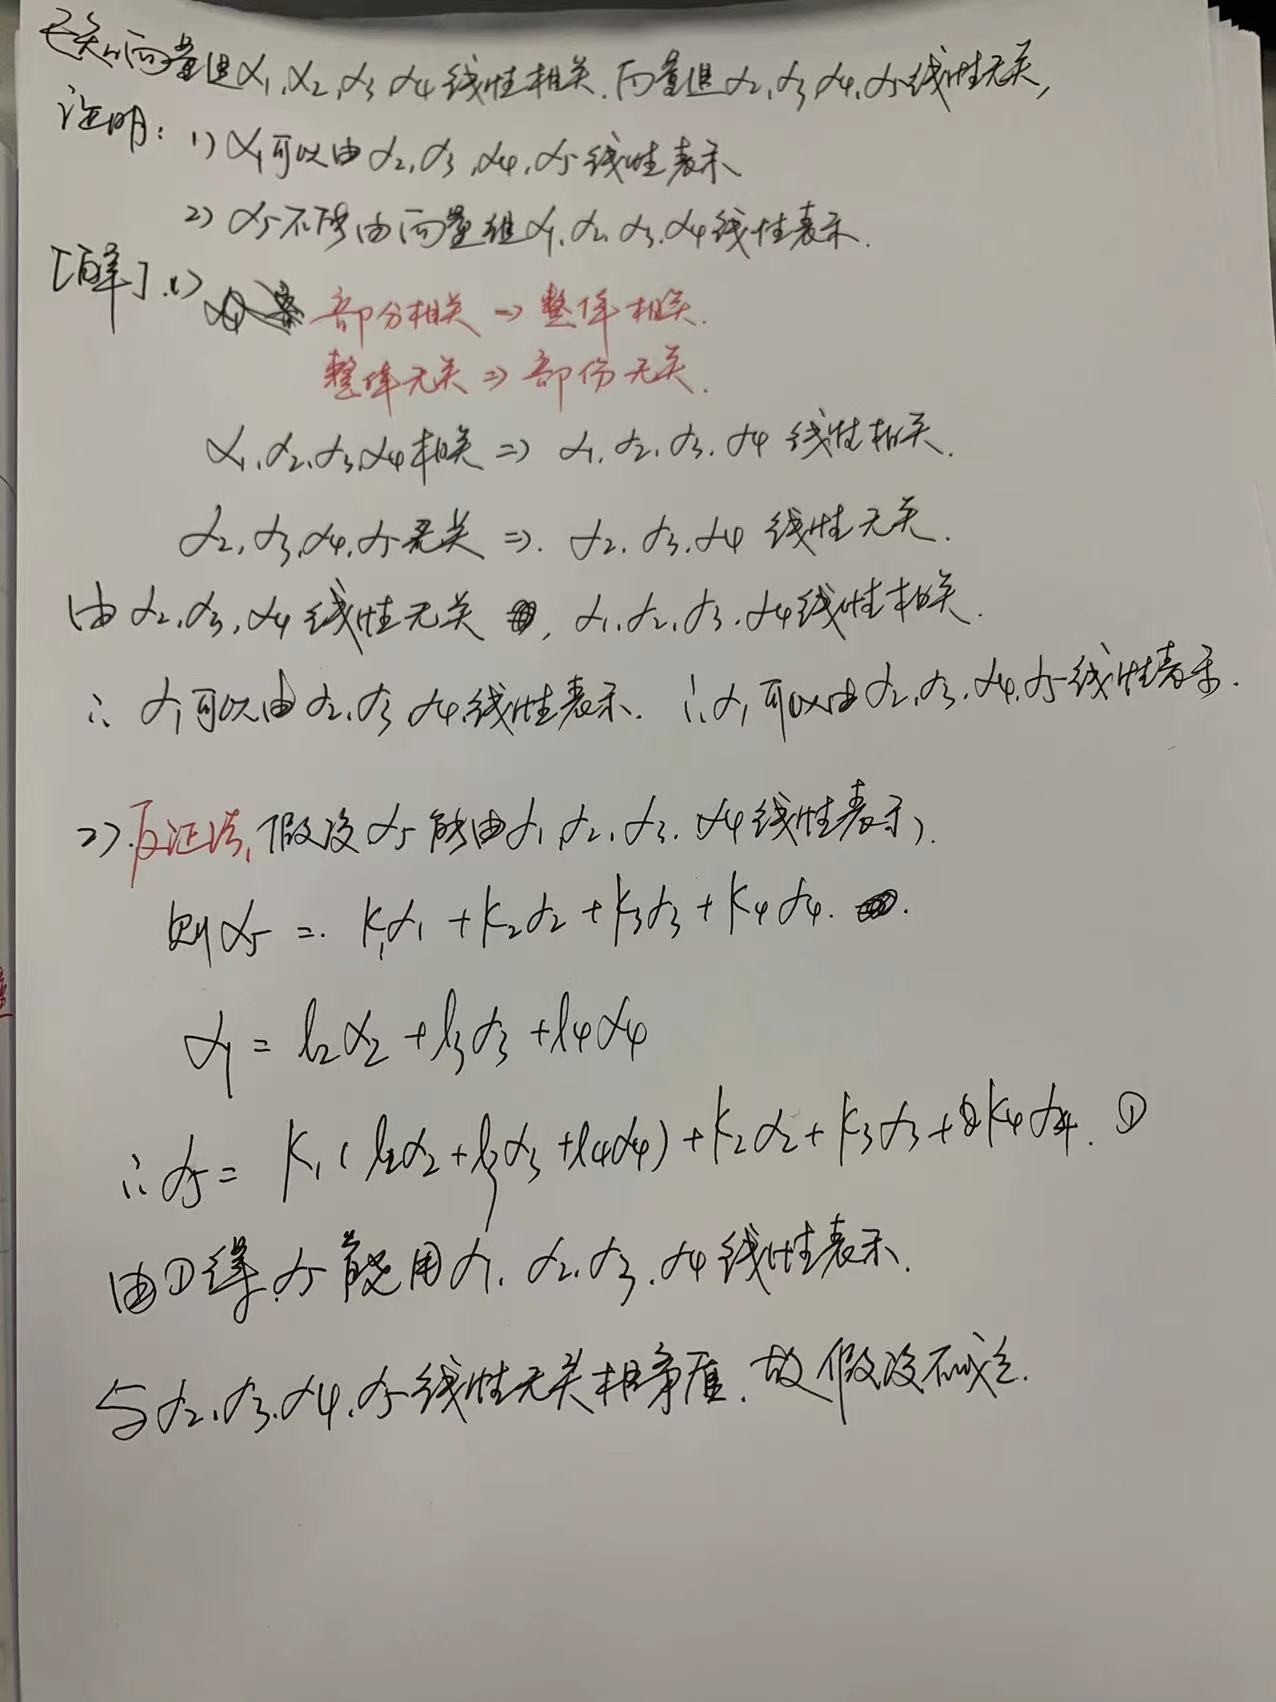 已知向量组α₁,α₂,α₃,α₄线性相关.向量组α₂,α₃,α₄,α₅线性无关,
证明: 1) α₁可以由α₂,α₃,α₄,α₅线性表示
2) α₅不能由向量组α₁,α₂,α₃,α₄线性表示.
[解].1) 部分相关→整体相关.
整体无关⇒部份无关.
α₁,α₂,α₃,α₄相关⇒ α₁,α₂,α₃,α₄ 线性相关.
α₂,α₃,α₄,α₅无关⇒. α₂,α₃,α₄ 线性无关.
由α₂,α₃,α₄线性无关, α₁,α₂,α₃,α₄线性相关.
∴ α₁可以由α₂,α₃,α₄线性表示. ∴α₁可以由α₂,α₃,α₄,α₅线性表示.
2).反证法,假设α₅能由α₁,α₂,α₃,α₄线性表示.
则α₅ = k₁α₁+k₂α₂+k₃α₃+k₄α₄.
α₁= l₂α₂+l₃α₃+l₄α₄
∴α₅= k₁(l₂α₂+l₃α₃+l₄α₄)+k₂α₂+k₃α₃+k₄α₄. ①
由①得,α₅能用α₁,α₂,α₃,α₄线性表示.
与α₂,α₃,α₄,α₅线性无关相矛盾.故假设不成立.